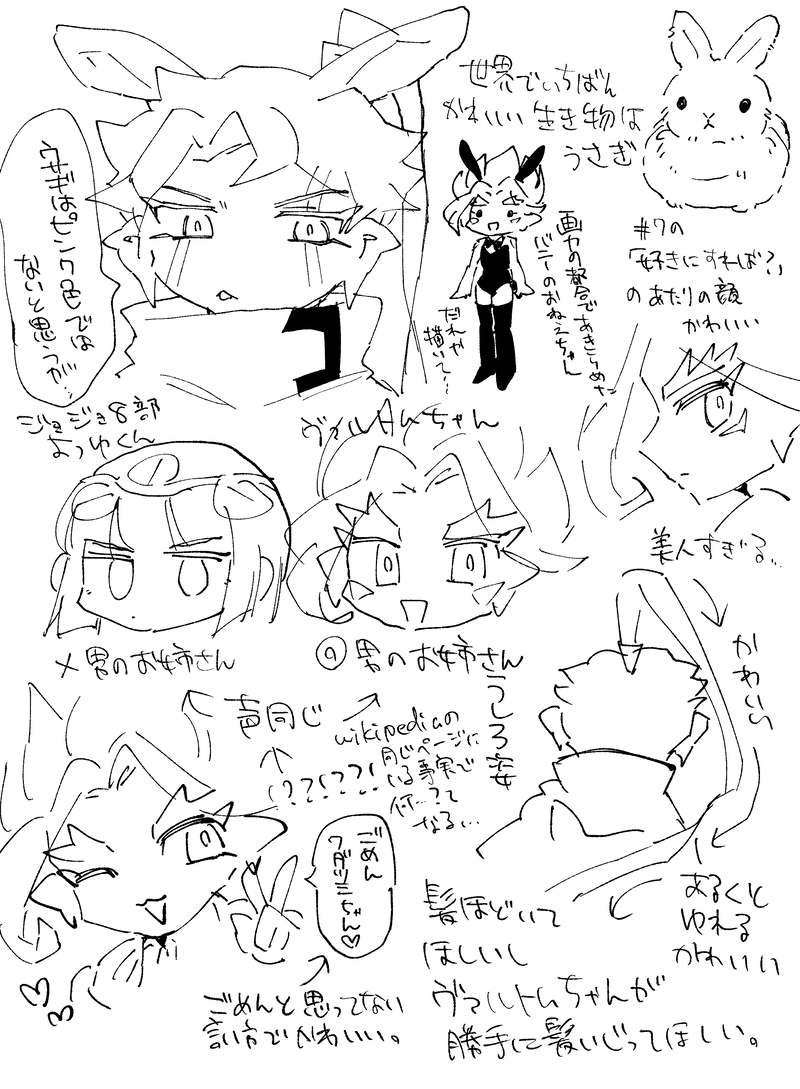 世界でいちばん
かわいい生き物は
うさぎ
ウサギはピンク色では
ないと思うが…
画力の都合であきらめた
バニーのおねえちゃん
だれか
描いて…
#7の
「好きにすれば？」
のあたりの顔
かわいい
ジョジョ8部
よつゆくん
ヴァルトムちゃん
美人すぎる…
×男のお姉さん
男のお姉さん
声同じ
wikipediaの
同じページに
いる事実で
何…?て
なる…
!?!??!?!
うしろ姿
かわいい
ごめん
ワダツミちゃん♡
あるくと
ゆれる
かわいい
髪ほどいて
ほしいし
ヴァルトムちゃんが
勝手に髪いじってほしい。
ごめんと思ってない
言い方でかわいい。